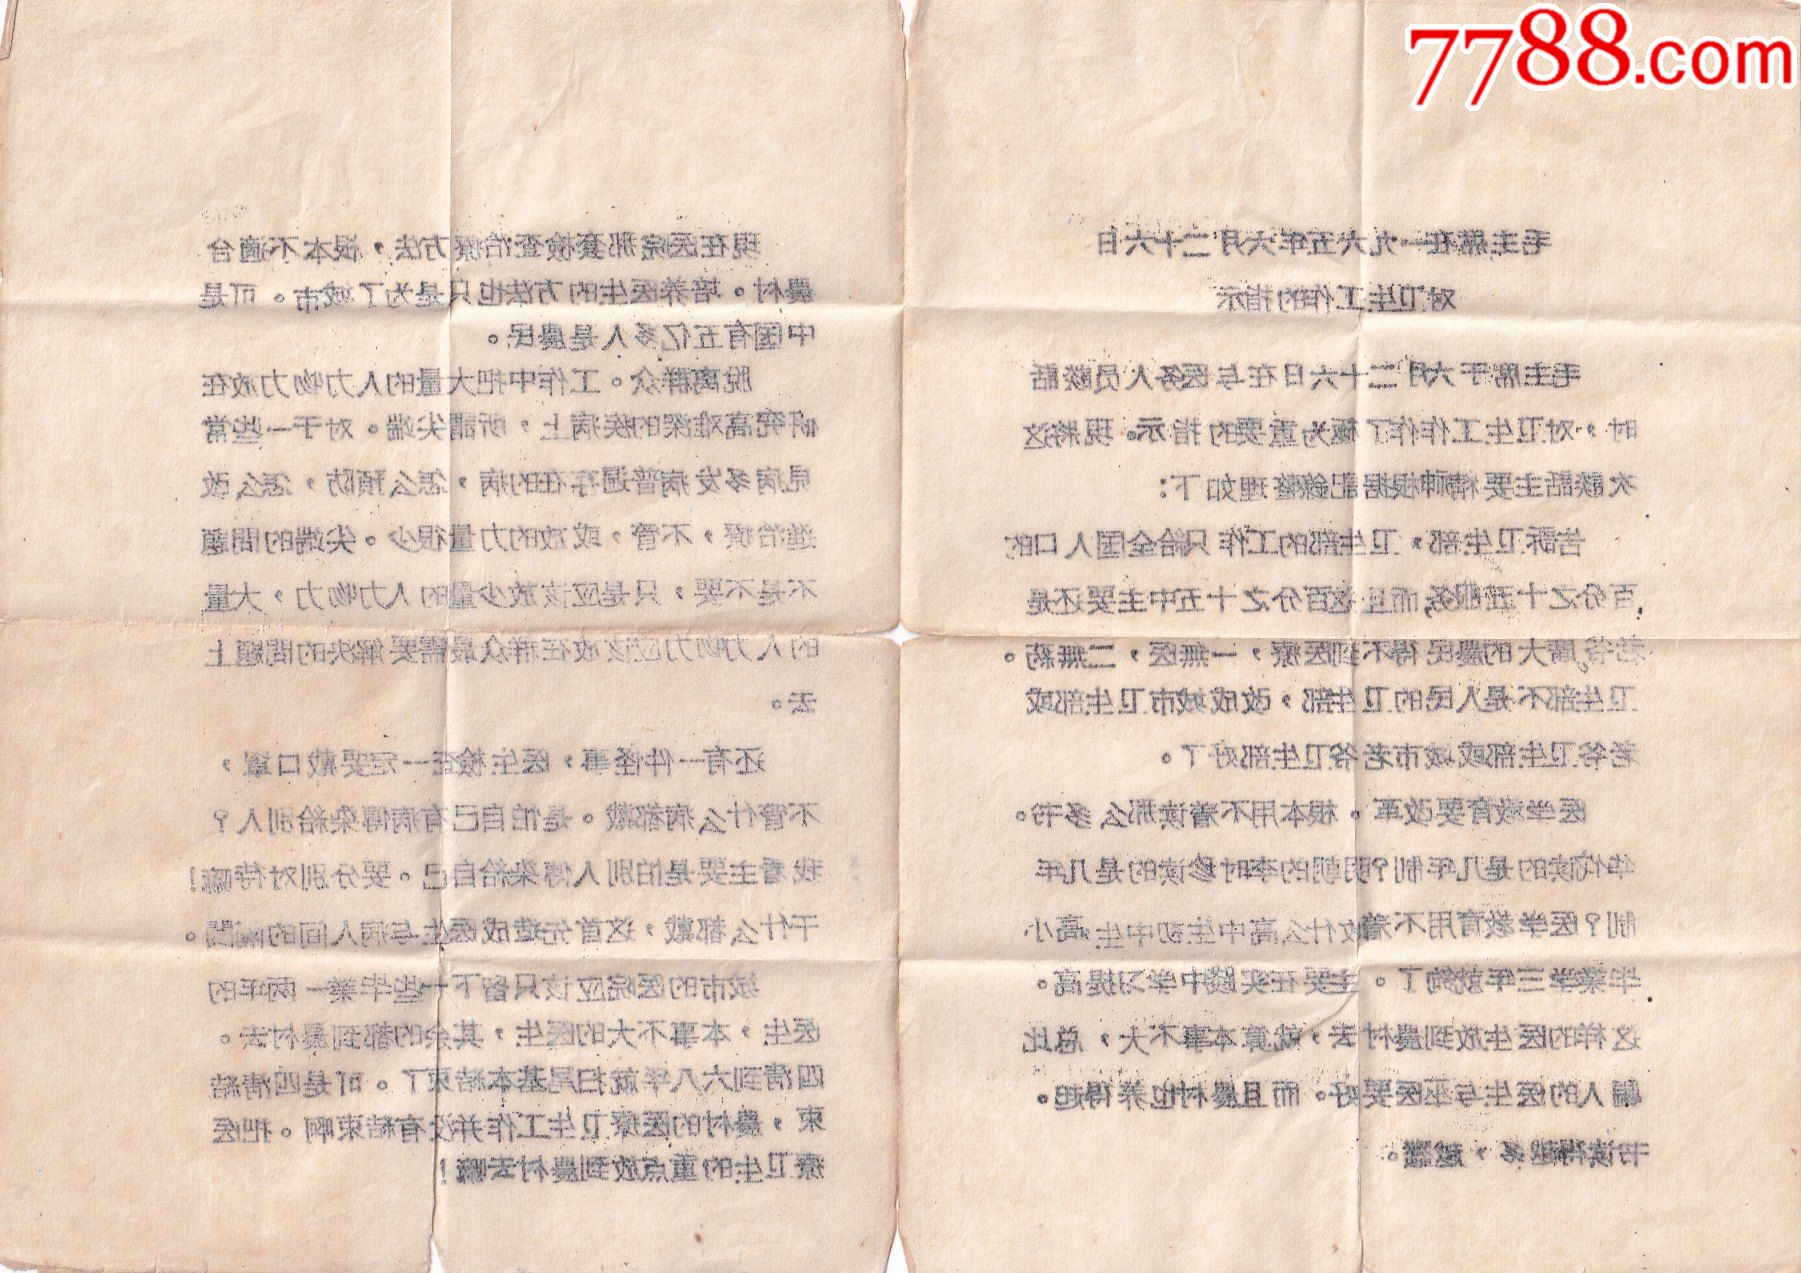 7788.com
毛主席在一九六五年六月二十六日
对卫生工作的指示
毛主席于六月二十六日在与医务人员談話
时，对卫生工作作了極为重要的指示。現將这
次談話主要精神根据記錄整理如下：
告訴卫生部，卫生部的工作只給全国人口的
百分之十五服务，而且这百分之十五中主要还是
老爷。廣大的農民得不到医療，一無医，二無葯。
卫生部不是人民的卫生部，改成城市卫生部或
老爷卫生部或城市老爷卫生部好了。
医学教育要改革。根本用不着读那么多书。
华佗读的是几年制？明朝的李时珍读的是几年
制？医学教育用不着收什么高中生初中生，高小
毕業学三年就夠了。主要在实踐中学习提高。
这样的医生放到農村去，就算本事不大，总比
騙人的医生与巫医要好。而且農村也养得起。
书读得越多，越蠢。
現在医院那套檢查治療方法，根本不適合
農村。培养医生的方法也只是为了城市。可是
中国有五亿多人是農民。
脫离群众。工作中把大量的人力物力放在
研究高难深的疾病上，所謂尖端。对于一些常
見病多发病普遍存在的病，怎么預防，怎么改
進治療，不管，或放的力量很少。尖端的問題
不是不要，只是应該放少量的人力物力，大量
的人力物力应該放在群众最需要解决的問題上
去。
还有一件怪事，医生檢查一定要戴口罩，
不管什么病都戴。是怕自己有病傳染給別人？
我看主要是怕別人傳染給自己。要分別对待嘛！
干什么都戴，这首先造成医生与病人间的隔閡。
城市的医院应該只留下一些毕業一兩年的
医生，本事不大的医生，其余的都到農村去。
四清到六八年就扫尾基本結束了。可是四清結
束，農村的医療卫生工作并没有結束啊。把医
療卫生的重点放到農村去嘛！